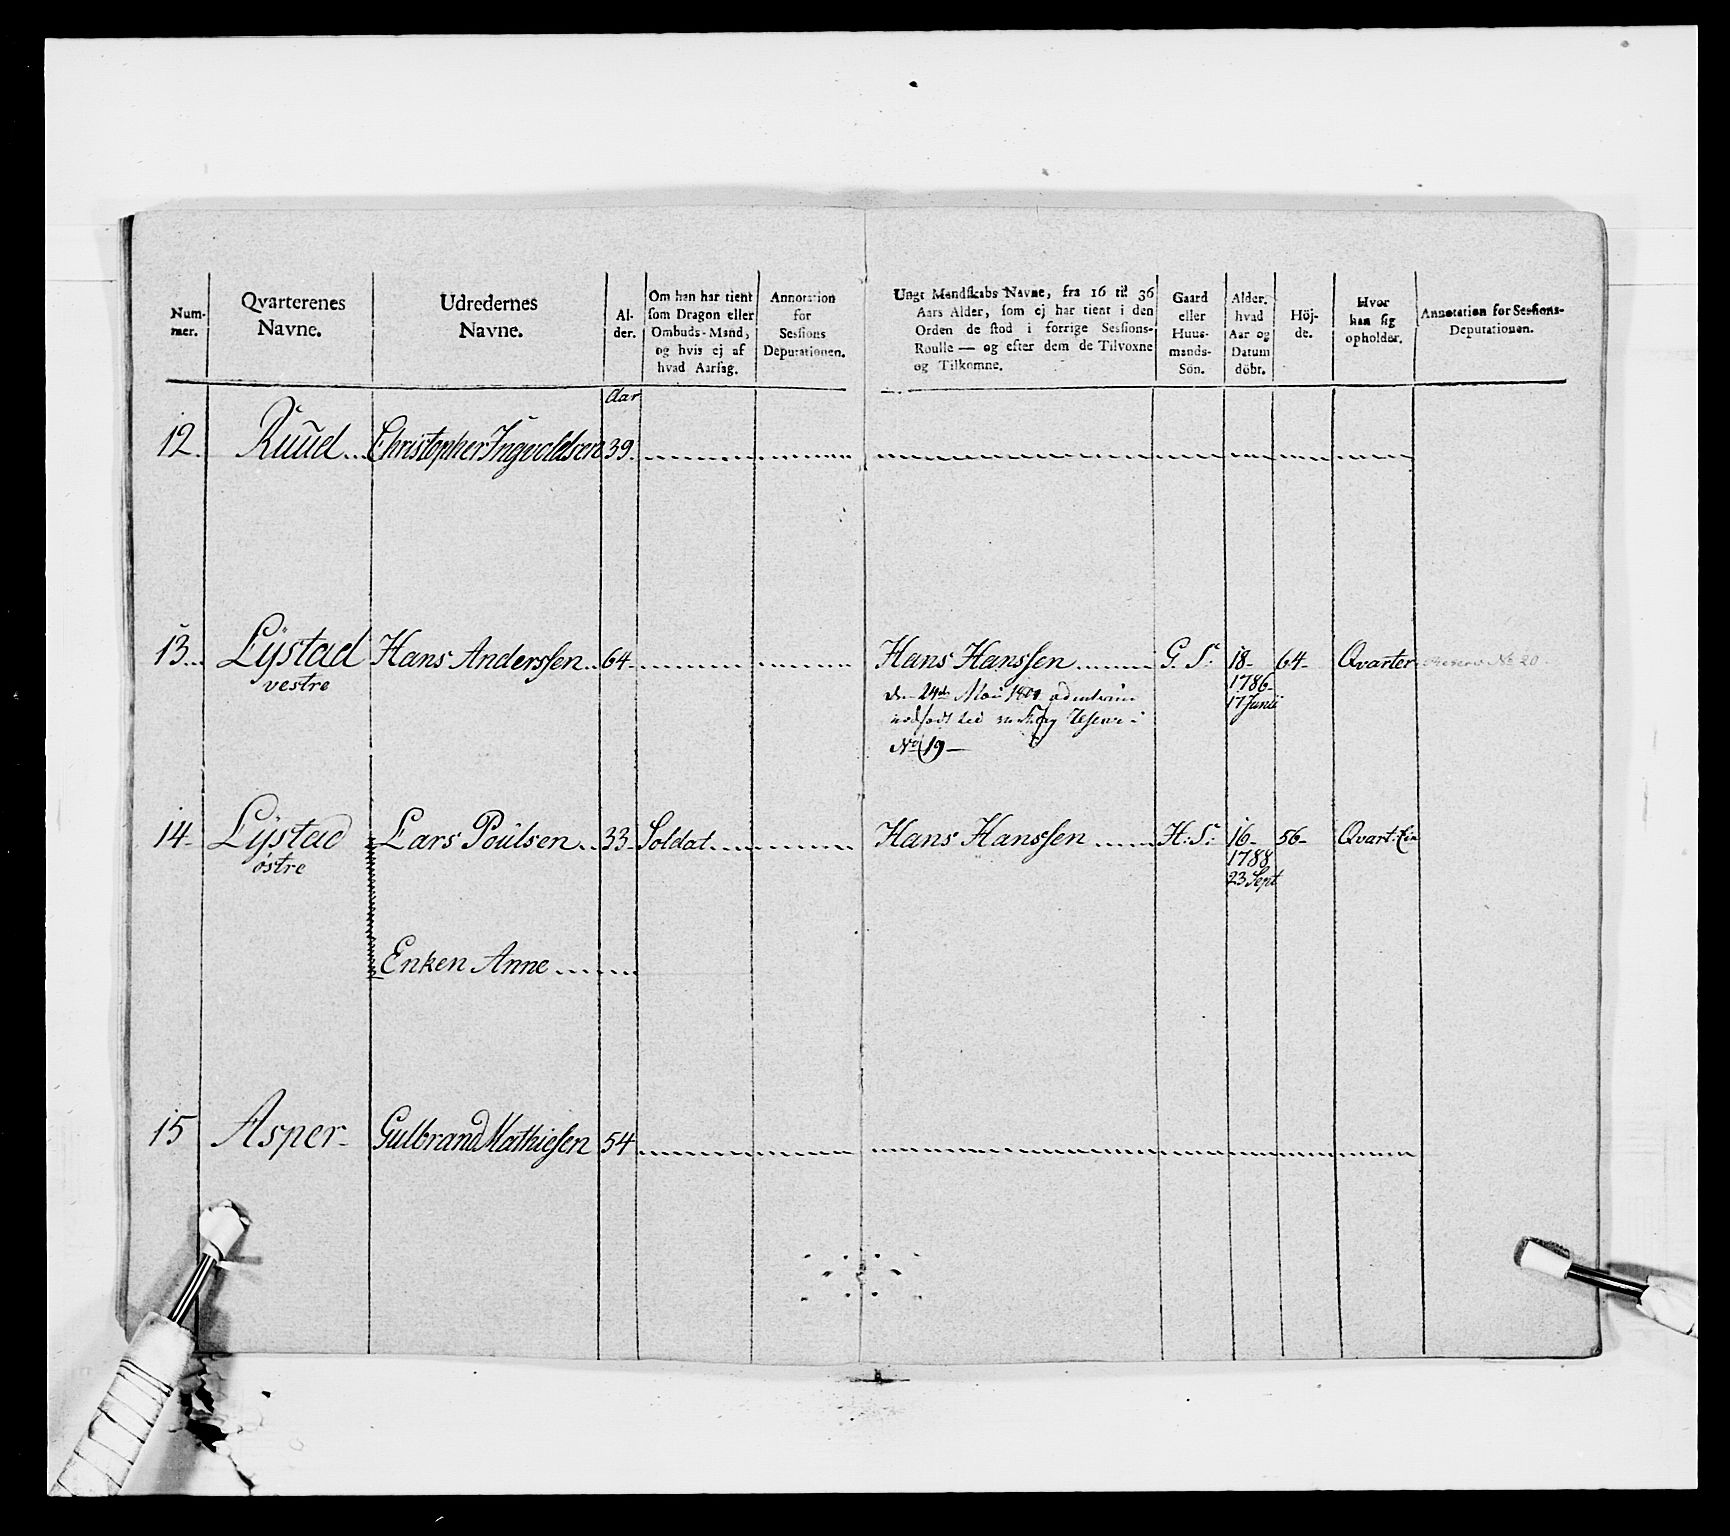 Num-
mer.
Qvarterenes
Navne.
Udredernes
Navne.
Al-
der.
Om han har tient
som Dragon eller
Ombuds-Mand,
og hvis ej af
hvad Aarsag.
Annotation
for
Sessions
Deputationen.
Ungt Mandskabs Navne, fra 16 til 36
Aars Alder, som ej har tient i den
Orden de stod i forrige Sessions-
Roulle — og efter dem de Tilvoxne
og Tilkomne.
Gaard
eller
Huus-
mands-
Sön.
Alder.
hvad
Aar og
Datum
döbt.
Höj-
de.
Hvor
han sig
opholder.
Annotation for Sessions-
Deputationen.
Aar
12. Ruud Christopher Ingvoldsen 39.
13. Lystad Hans Anderssen 64 Hans Hanssen G. S. 18- 64- Qvarter Reserv No 20
vestre 1786-
17 Junii
den 24de Mai
No 19
14- Lystad Lars Poulsen 33- Soldat Hans Hanssen H: S: 16- 56-
østre 1788
23 Sept
Enken Anne
15 Asper- Gulbrand Mathiesen 54